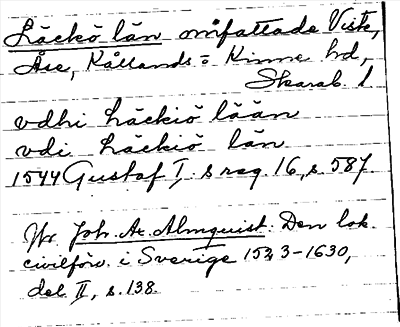 Läckö län omfattade Viste,
Åse, Kållands o Kinne hd,
Skarab. l
vdhi Läckiö lään
vdi Läckiö län
1544 Gustaf I:s reg. 16, s. 587.
Jfr Joh. Ax. Almquist: Den lok.
civilförv. i Sverige 1523-1630,
del II, s. 138.